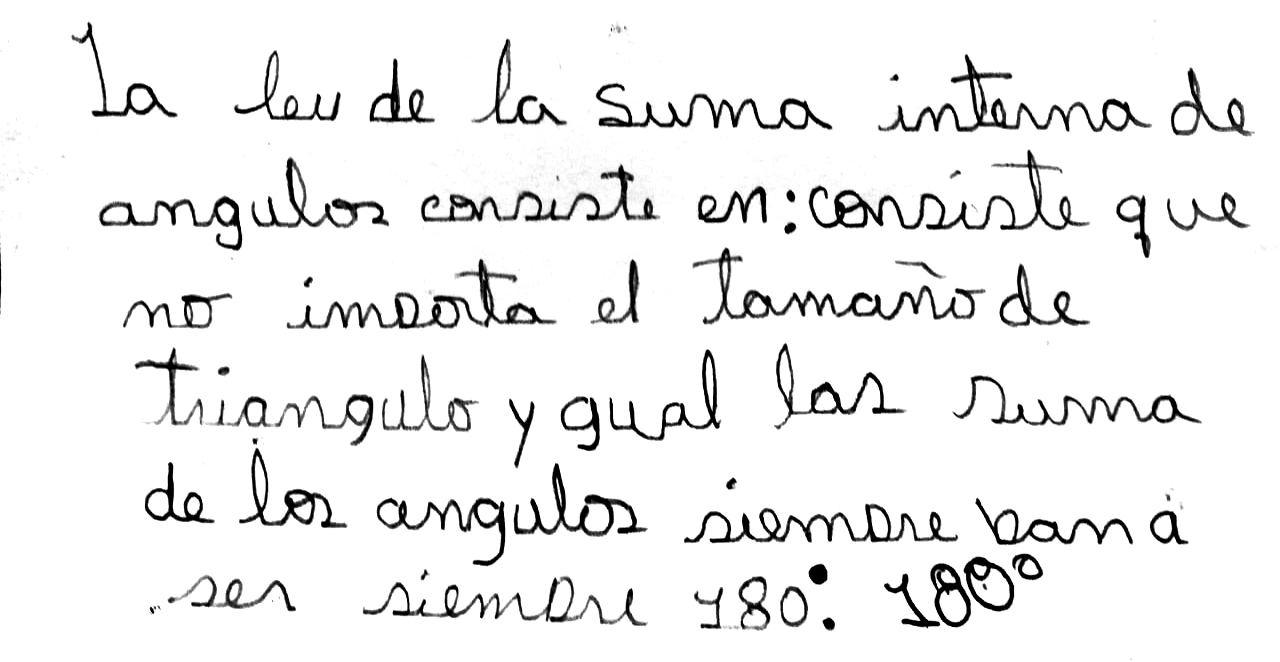 La ley de la suma interna de
angulos consiste en: consiste que
no importa el tamaño de
triangulo y gual las suma
de los angulos siempre ban a
ser siempre 180: 180°